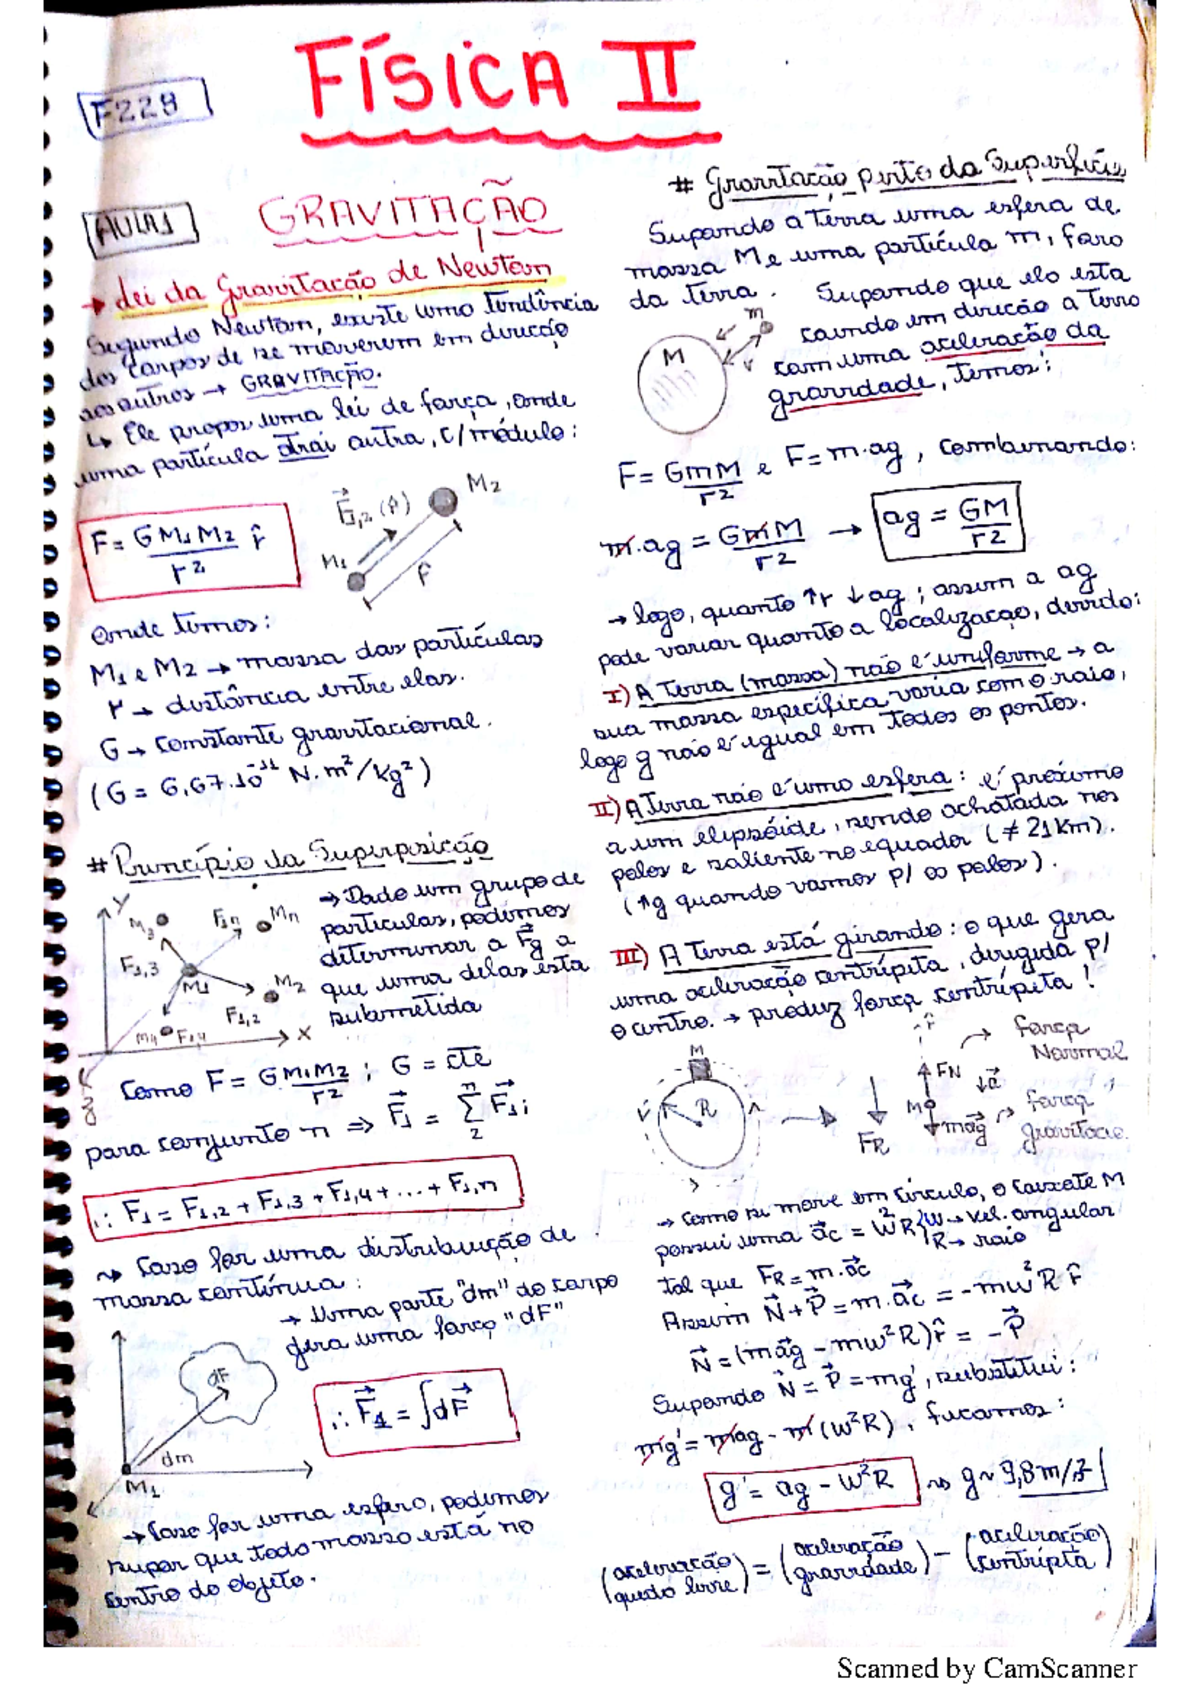 FÍSICA II
F228
AULA 1
GRAVITAÇÃO
→ Lei da Gravitação de Newton
Segundo Newton, existe uma tendência
dos corpos de se moverem em direção
aos outros → GRAVITAÇÃO.
↳ Ele propos uma lei de força, onde
uma partícula atrai outra, c/ módulo:
F = G M1 M2 r̂
r²
G⃗1,2 (r̂)
M2
M1
r̂
Onde temos:
M1 e M2 → massa das partículas
r → distância entre elas.
G → constante gravitacional.
(G = 6,67.10⁻¹¹ N.m²/kg²)
# Princípio da Superposição
→ Dado um grupo de
partículas, podemos
determinar a F⃗g a
que uma delas está
submetida
Y
M3
F1,n
Mn
F1,3
M1
M2
F1,2
M4
F1,4
X
z
Como F = G M1M2 ; G = cte
r²
para conjunto n ⇒ F⃗1 = n Σ 2 F⃗1i
∴ F1 = F1,2 + F1,3 + F1,4 + ... + F1,n
↝ Caso for uma distribuição de
massa contínua:
→ Uma parte "dm" do corpo
gera uma força "dF"
dF
dm
M1
∴ F⃗1 = ∫dF⃗
→ Caso for uma esfera, podemos
supor que toda massa está no
centro do objeto.
# Gravitação perto da Superfície
Supondo a terra uma esfera de
massa M e uma partícula m, fora
da terra. Supondo que ela esta
caindo em direção a terra
com uma aceleração da
gravidade, temos:
m
M
F = GmM e F = m.ag, combinando:
r²
m.ag = GmM → ag = GM
r² r²
→ logo, quanto ↑r ↓ag ; assim a ag
pode variar quanto a localização, devido:
I) A Terra (massa) não é uniforme → a
sua massa específica varia com o raio,
logo g não é igual em todos os pontos.
II) A Terra não é uma esfera: é próximo
a um elipsóide, sendo achatada nos
polos e saliente no equador (≠ 21km).
(↑g quando vamos p/ os polos).
III) A Terra está girando: o que gera
uma aceleração centrípeta, dirigida p/
o centro. → produz força centrípeta!
M
R
FR
r̂
FN
a⃗
M
mag⃗
força
Normal
força
gravitacio.
→ Como se move em círculo, o caixote M
possui uma a⃗c = w²R { w → vel. angular
R → raio
tal que FR = m.a⃗c
Assim N⃗ + P⃗ = m.a⃗c = -mw²R r̂
N⃗ = (mag⃗ - mw²R)r̂ = -P⃗
Supondo N⃗ = P⃗ = mg', substitui:
mg' = mag - m(w²R), ficamos:
g' = ag - w²R ↝ g ~ 9,8 m/s²
(aceleração queda livre) = (aceleração gravidade) - (aceleração centrípta)
Scanned by CamScanner